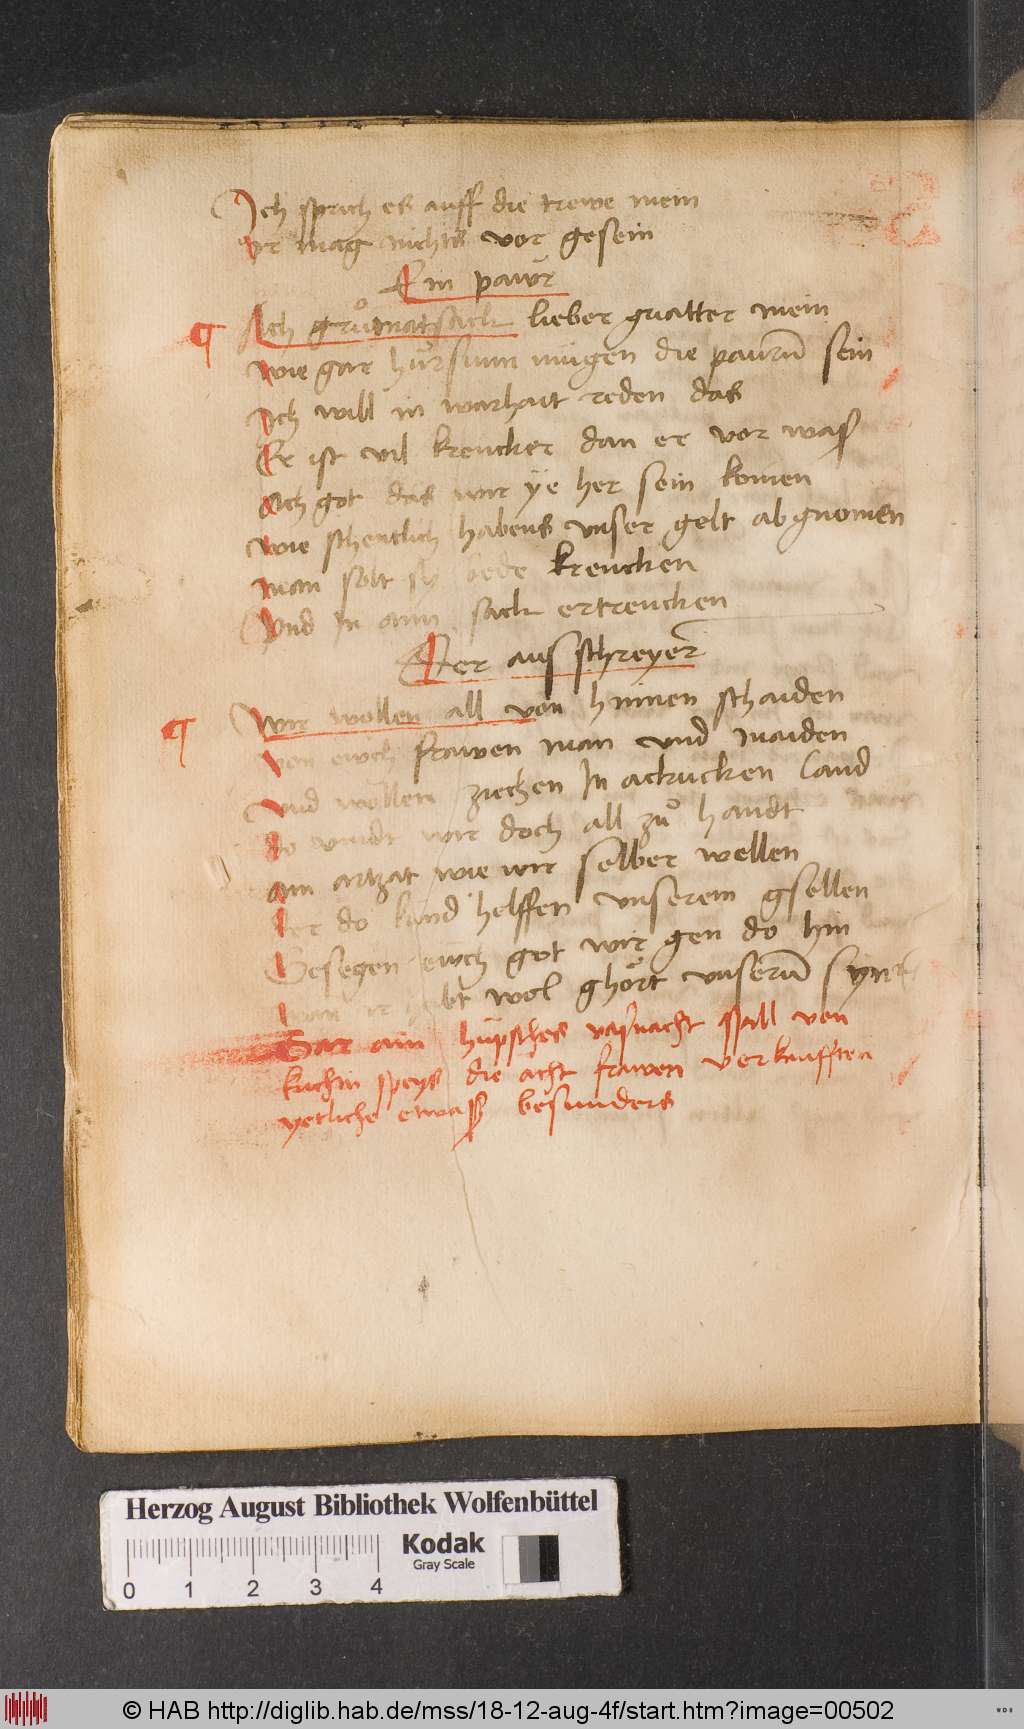 Ich sprich es auff die trewe mein
Er mag nichts vor gesein
Ein pawr
¶ Ach grůmatsack lieber gvatter mein
wie gar mügen die paurn̄ sein
Ich will in warhait reden das
Er ist vil krencker dan er vor waß
Ach got das wir ye her sein komen
wie schentlich habens vnser gelt abgnomen
man solt sy bede krencken
Vnd In ainn sack ertrencken
Der ausschreyer
¶ Wir wollen all von hinnen schaiden
von ewch frawen man vnd maiden
vnd wollen ziechen In ackrucken land
do vindt wir doch all zů handt
ain artzat wie wir selber wellen
der do kund helffen vnserem gsellen
Gesegen ewch got wir gen do hin
wan ir habt wol ghört vnsern̄ syn
Gar ain hüpsches vaßnacht spill von
kuchin speys die acht frawen verkaufften
yetliche etwaß besunders
Herzog August Bibliothek Wolfenbüttel
Kodak
Gray Scale
0 1 2 3 4
© HAB http://diglib.hab.de/mss/18-12-aug-4f/start.htm?image=00502